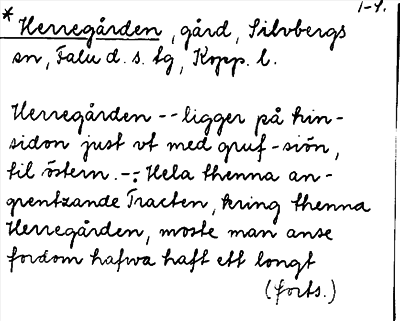 1-4.
* Herregården, gård, Silvbergs
sn, Falu d. s. tg, Kopp. l.
Herregården -- ligger på hin-
sidon just vt med gruf-siön,
til östern. -:- Hela thenna an-
grentzande Tracten, kring thenna
Herregården, moste man anse
fordom hafwa haft ett longt
(forts.)